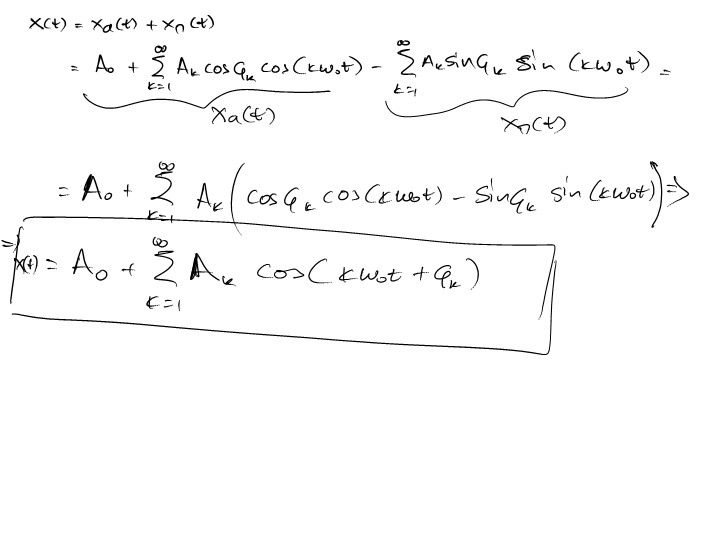 x(t) = xa(t) + xη(t)
= A₀ + ∑_{k=1}^{∞} Aₖ cosφₖ cos(kω₀t) − ∑_{k=1}^{∞} Aₖ sinφₖ sin(kω₀t) =
xa(t) xη(t)
= A₀ + ∑_{k=1}^{∞} Aₖ (cosφₖ cos(kω₀t) − sinφₖ sin(kω₀t)) ⇒
⇒ x(t) = A₀ + ∑_{k=1}^{∞} Aₖ cos(kω₀t + φₖ)